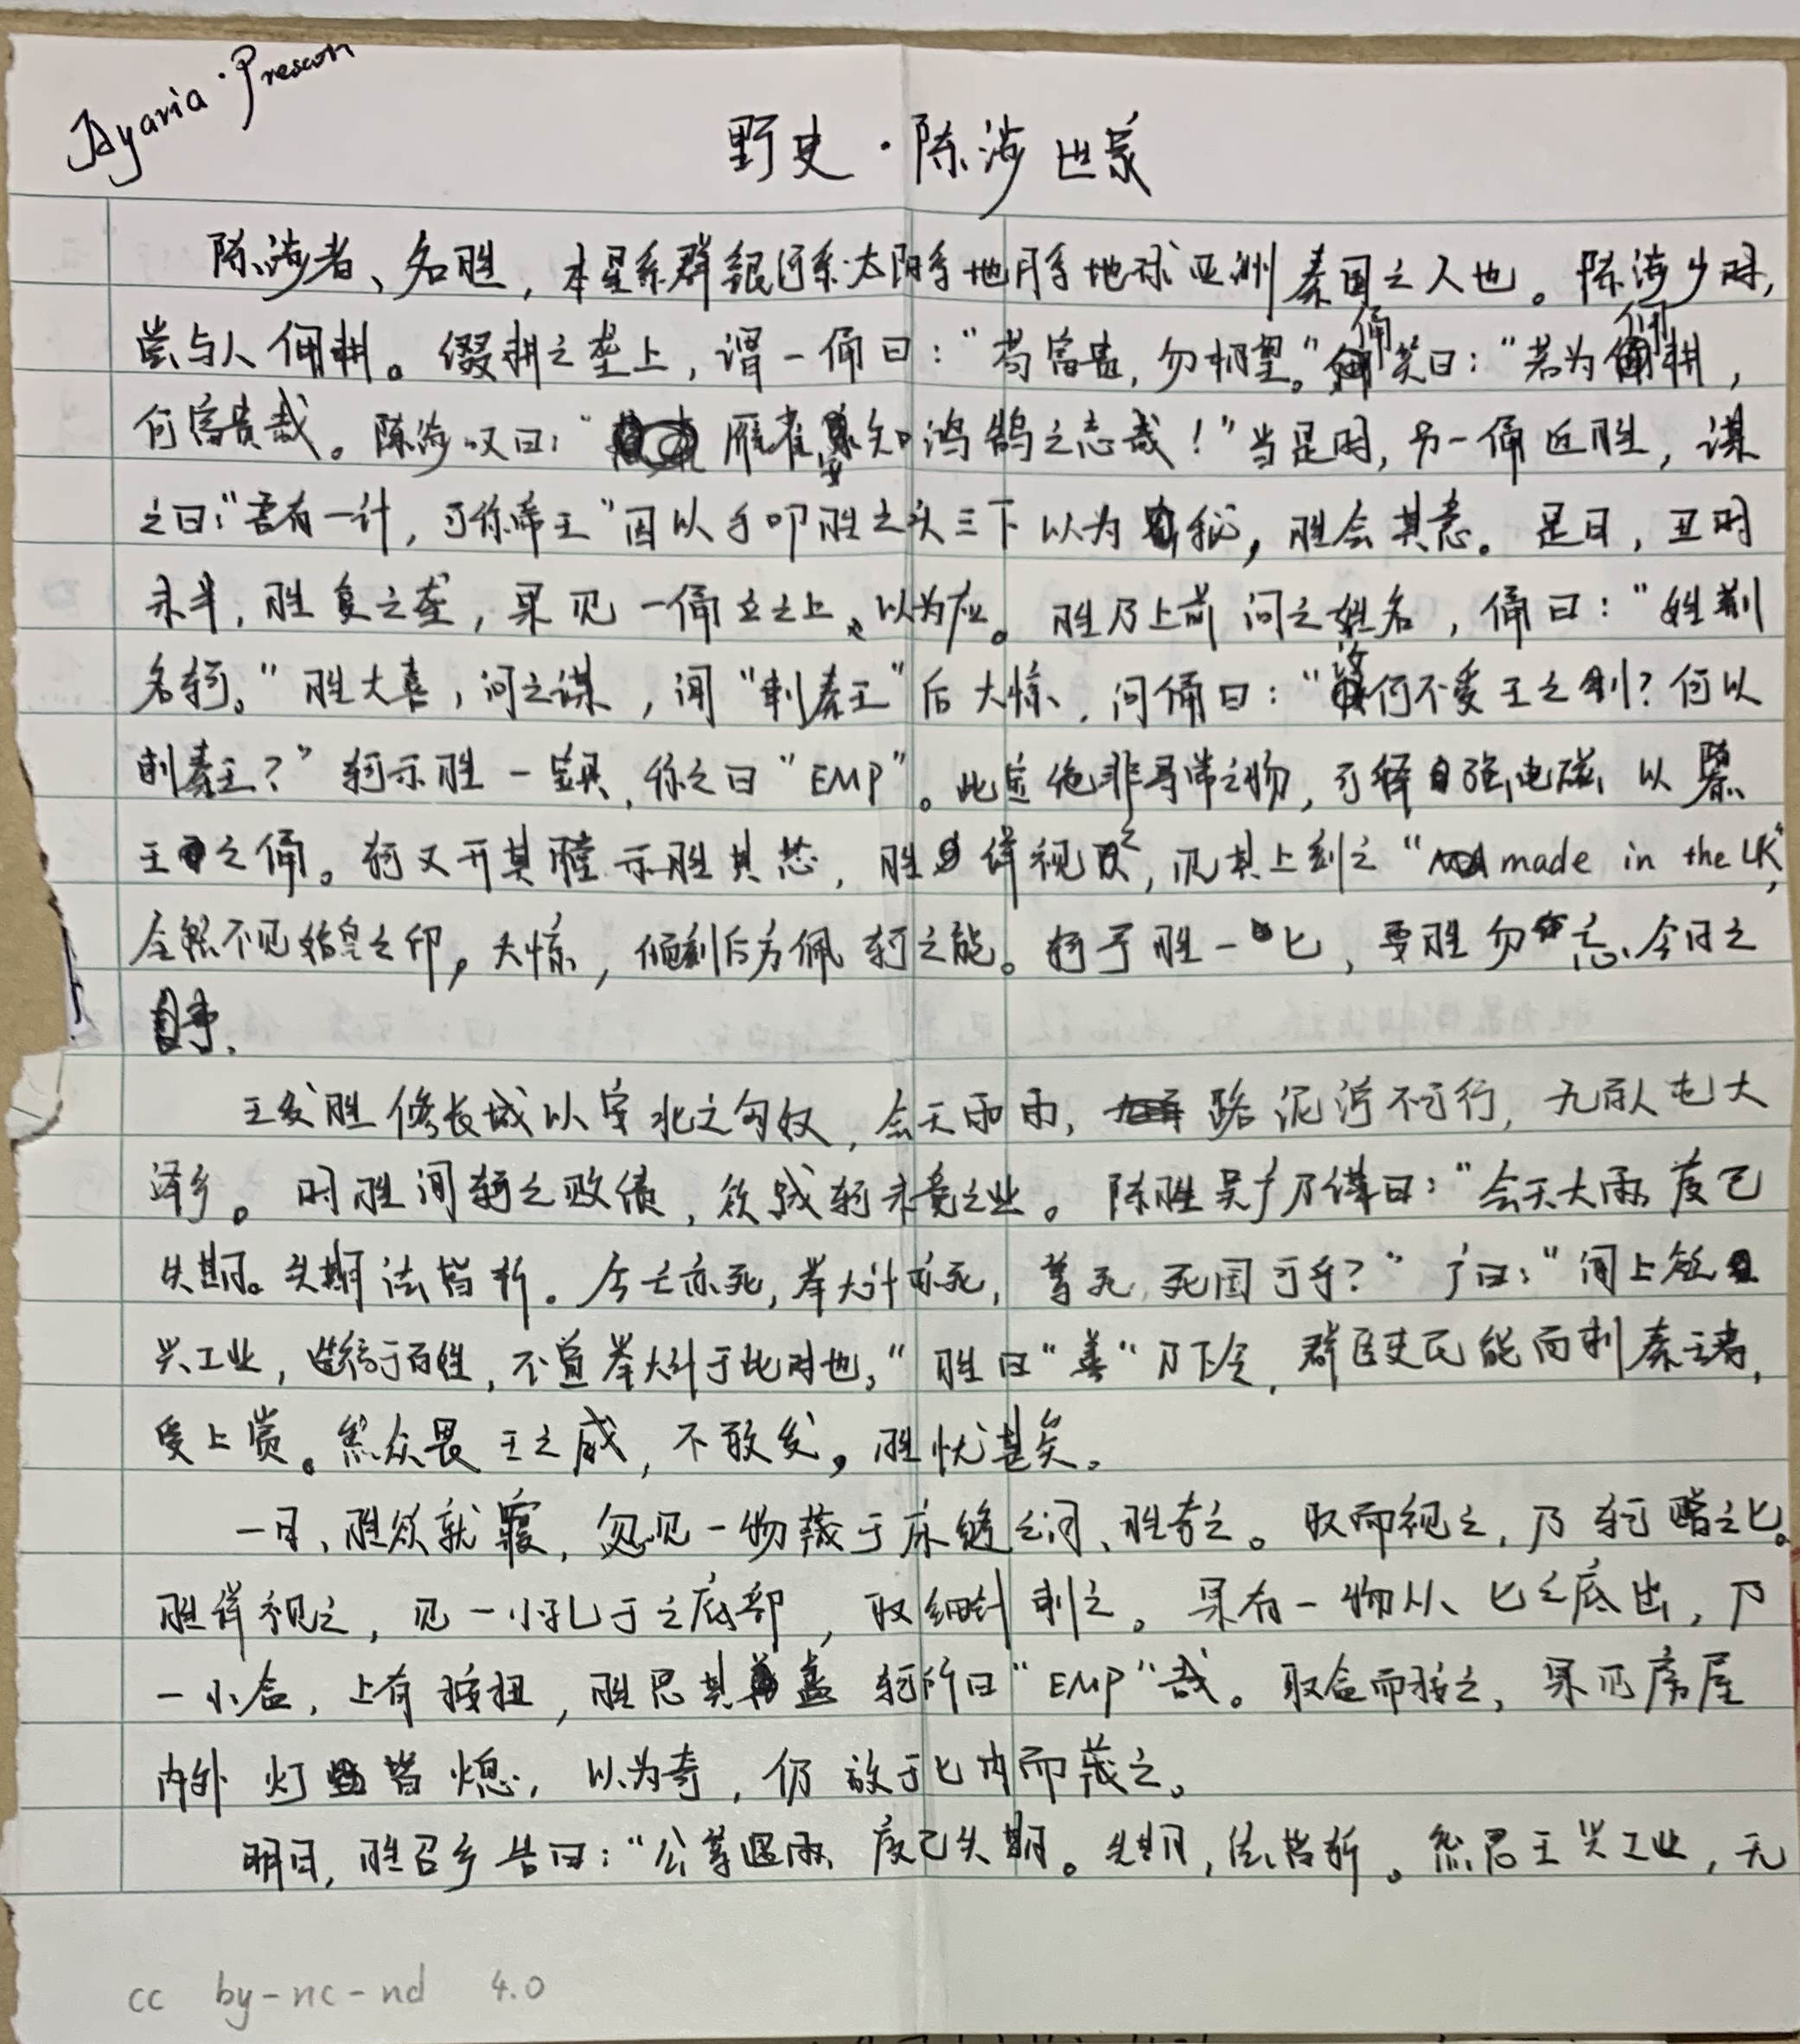 Ayaria·Prescott
野史·陈涉世家
陈涉者、名胜，本星系群银河系太阳系地月系地球亚洲秦国之人也。陈涉少时，
尝与人佣耕。缀耕之垄上，谓一佣曰："苟富贵，勿相望。"佣笑曰："若为佣耕，
何富贵哉。陈涉叹曰："雁雀安知鸿鹄之志哉！"当是时，另一佣近胜，谋
之曰："吾有一计，可称帝王"因以手叩胜之头三下以为秘，胜会其意。是日，丑时
未半，胜复之垄，果见一佣立之上、以为应。胜乃上前问之姓名，佣曰："姓荆
名轲。"胜大喜，问之谋，闻"刺秦王"后大惊，问佣曰："汝何不受王之制？何以
刺秦王？"轲示胜一奁，称之曰"EMP"。此奁绝非寻常之物，可释强电磁以禦
王之佣。轲又开其膛示胜其芯，胜详视之，见其上刻之"made in the UK"，
全然不见始皇之印，大惊，倾刻后方佩轲之能。轲予胜一匕，要胜勿忘今日之
事.
王发胜修长城以守北之匈奴，会天雨雨，路泥泞不可行，九百人屯大
泽乡。时胜闻轲之败绩，欲成轲未竟之业。陈胜吴广乃谋曰："会天大雨度已
失期。失期法皆斩。今亡亦死，举大计亦死，等死，死国可乎？"广曰："闻上欲
兴工业，造福于百姓，不宜举大计于此时也。"胜曰"善"乃下令，群臣吏民能面刺秦王者，
受上赏。然众畏王之威，不敢发，胜忧甚矣。
一日，胜欲就寝，忽见一物藏于床缝之间、胜奇之。取而视之，乃轲赠之匕。
胜详视之，见一小孔于之底部，取细针刺之。果有一物从匕之底出，乃
一小盒，上有按扭，胜思其盖轲所曰"EMP"哉。取盒而按之，果见房屋
内外灯皆熄，以为奇，仍放于匕内而藏之。
明日，胜召乡告曰："公等遇雨度已失期。失期，法皆斩。然君王兴工业，无
cc by-nc-nd 4.0